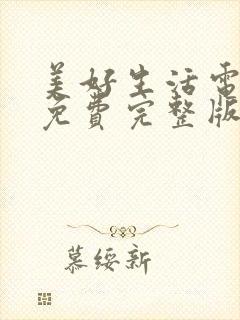 美好生活電
免費完整版
慕綏新